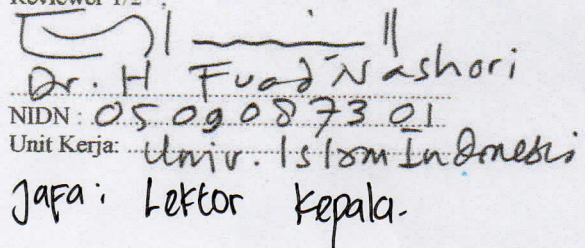 Reviewer 1/2
Dr. H Fuad Nashori
NIDN : 05 090873 01
Unit Kerja: Univ. Islam Indonesia
Jafa: Lektor Kepala.